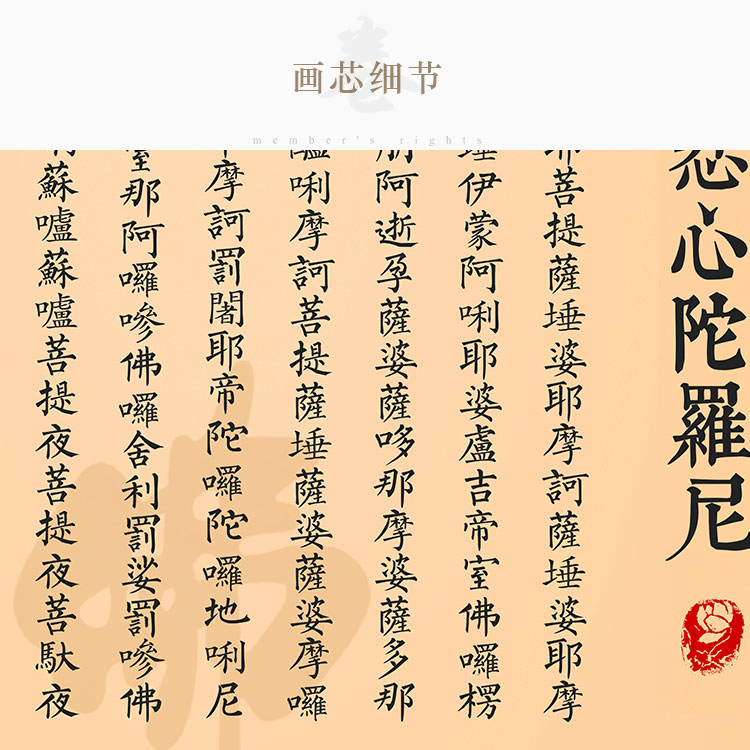 画芯细节
member's rights
心陀羅尼
菩提薩埵婆耶摩訶薩埵婆耶摩
伊蒙阿唎耶婆盧吉帝室佛囉楞
阿逝孕薩婆薩哆那摩婆薩多那
唎摩訶菩提薩埵薩婆薩婆摩囉
摩訶罰闍耶帝陀囉陀囉地唎尼
那阿囉嘇佛囉舍利罰娑罰嘇佛
蘇嚧蘇嚧菩提夜菩提夜菩馱夜